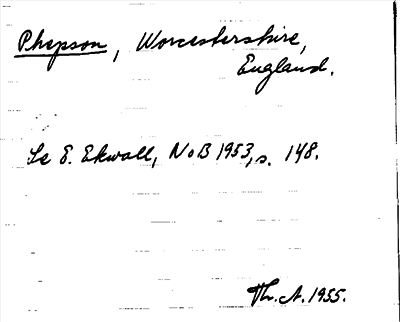 Phepson, Worcestershire,
England.
Se E. Ekwall, NoB 1953, s. 148.
Th. A. 1955.